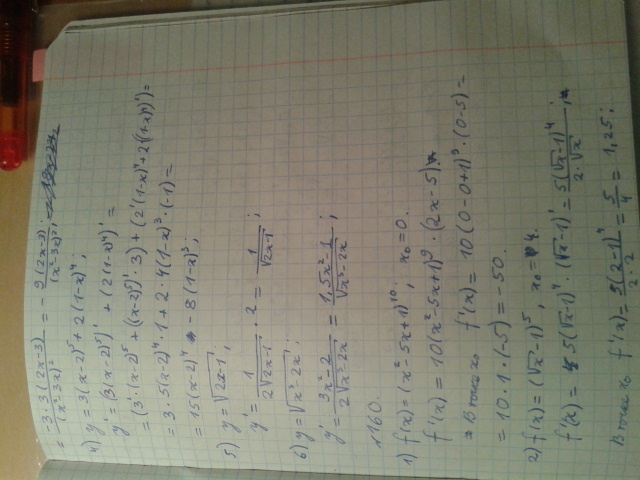 = -3·3(2x-3)/(x²-3x)² = - 9(2x-3)/(x²-3x)²;
4) y = 3(x-2)⁵ + 2(1-x)⁴;
y' = (3(x-2)⁵)' + (2(1-x)⁴)' =
= (3'·(x-2)⁵ + ((x-2)⁵)'·3) + (2'(1-x)⁴ + 2((1-x)⁴)') =
= 3·5(x-2)⁴·1 + 2·4(1-x)³·(-1) =
= 15(x-2)⁴ - 8(1-x)³;
5) y = √2x-1;
y' = 1/2√2x-1 · 2 = 1/√2x-1;
6) y = √x³-2x;
y' = 3x²-2/2√x³-2x = 1,5x²-1/√x³-2x;
№160.
1) f(x) = (x²-5x+1)¹⁰, x₀=0.
f'(x) = 10(x²-5x+1)⁹·(2x-5)
В точке x₀ f'(x) = 10(0-0+1)⁹·(0-5) =
= 10·1·(-5) = -50.
2) f(x) = (√x-1)⁵, x₀=4.
f'(x) = 5(√x-1)⁴·(√x-1)' = 5(√x-1)⁴/2·√x;
В точке x₀ f'(x) = 5(2-1)⁴/2·2 = 5/4 = 1,25;